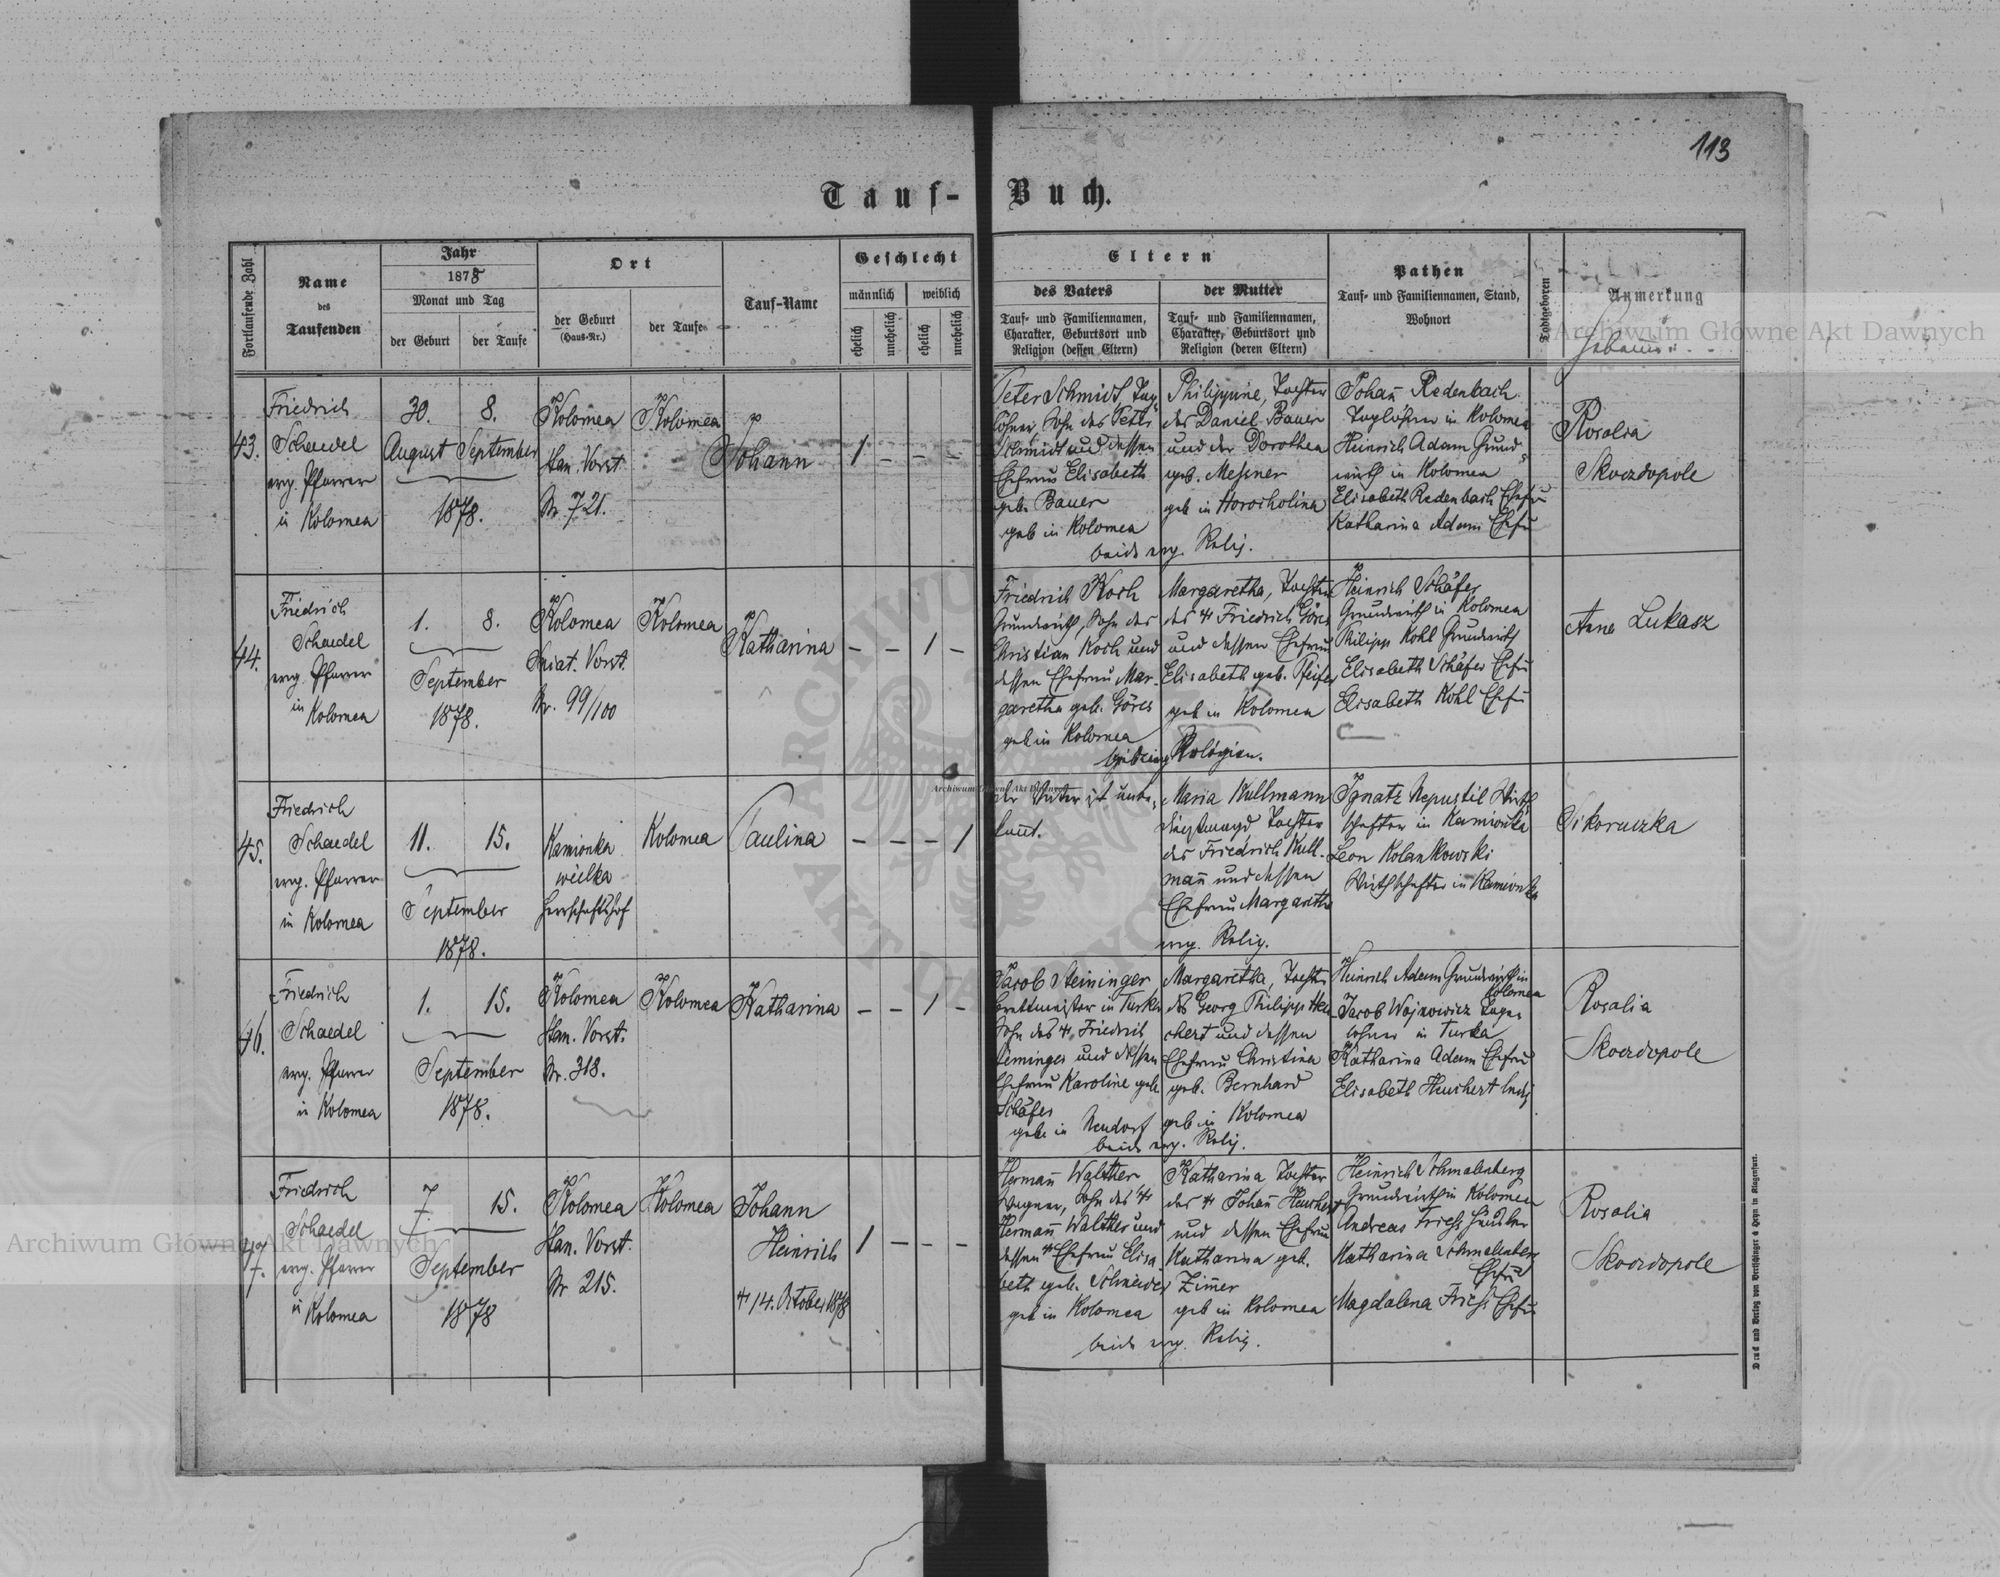 113
Tauf-Buch.
Fortlaufende Zahl
Name
des
Taufenden
Jahr
1878
Monat und Tag
der Geburt
der Taufe
Ort
der Geburt
(Haus-Nr.)
der Taufe
Tauf-Name
Geschlecht
männlich
weiblich
ehelich
unehelich
ehelich
unehelich
Eltern
des Vaters
Tauf- und Familiennamen,
Charakter, Geburtsort und
Religion (dessen Eltern)
der Mutter
Tauf- und Familiennamen,
Charakter, Geburtsort und
Religion (deren Eltern)
Pathen
Tauf- und Familiennamen, Stand,
Wohnort
Todtgeboren
Anmerkung
Archiwum Główne Akt Dawnych
43.
Friedrich
Schaedel
evg. Pfarrer
in Kolomea
30.
August
8.
September
1878.
Kolomea
Stan. Vorst.
Nr. 721.
Kolomea
Johann
1 - - -
Peter Schmidt, Tag-
löhner, Sohn des Peter
Schmidt und dessen
Ehefrau Elisabeth
geb. Bauer
geb in Kolomea
Philippine, Tochter
des Daniel Bauer
und der Dorothea
geb. Messner
geb in Horocholina
beide evg. Relig.
Johañ Redenbach
Taglöhner in Kolomea
Heinrich Adam Grund-
wirth in Kolomea
Elisabeth Redenbach Ehefr
Katharina Adam Ehefr
Rosalia
Skorzdopole
44.
Friedrich
Schaedel
evg. Pfarrer
in
Kolomea
1.
8.
September
1878.
Kolomea
Sniat. Vorst.
Nr. 99/100
Kolomea
Katharina
- - 1 -
Friedrich Koch
Grundwirth, Sohn des
Christian Koch und
dessen Ehefrau Mar-
garetha geb. Göres
geb in Kolomea
Margaretha, Tochter
des † Friedrich Göres
und dessen Ehefrau
Elisabeth geb. Pfeifer
geb in Kolomea
beide evg Religion.
Heinrich Schäfer
Grundwirth in Kolomea
Philipp Kohl Grundwirth
Elisabeth Schäfer Ehefr
Elisabeth Kohl Ehefr
Anna Lukasz
45.
Friedrich
Schaedel
evg. Pfarrer
in Kolomea
11.
15.
September
1878.
Kamionka
wielka
Herrschaftshof
Kolomea
Paulina
- - - 1
der Vater ist unbe-
kañt.
Maria Kullmann
Dienstmagd Tochter
des Friedrich Kull-
mañ und dessen
Ehefrau Margareth
evg. Relig.
Ignatz Nepustil Wirth-
schafter in Kamionka
Leon Kolankowski
Wirthschafter in Kamionka
Sikoruczka
46.
Friedrich
Schaedel
evg. Pfarrer
in Kolomea
1.
15.
September
1878.
Kolomea
Stan. Vorst.
Nr. 318.
Kolomea
Katharina
- - 1 -
Jacob Steininger,
Brettmeister in Turka
Sohn des †, Friedrich
Steininger und dessen
Ehefrau Karoline geb
Schäfer
geb in Neudorf
Margaretha, Tochter
des Georg Philipp Heu-
chert und dessen
Ehefrau Christina
geb. Bernhard
geb in Kolomea
beide evg. Relig.
Heinrich Adam Grundwirth in
Kolomea
Jacob Wojnowicz Tage-
löhner in Turka
Katharina Adam Ehefrau
Elisabeth Heuchert ledig
Rosalia
Skorzdopole
47.
Friedrich
Schaedel
evg. Pfarrer
in
Kolomea
7.
15.
September
1878
Kolomea
Stan. Vorst.
Nr 215.
Kolomea
Johann
Heinrich
† 14. October 1878
1 - - -
Hermañ Walther
Wagner, Sohn des †
Hermañ Walther und
dessen † Ehefrau Elisa-
beth geb. Schneider
geb in Kolomea
Katharina Tochter
des † Johañ Heuchert
und dessen Ehefrau
Katharina geb.
Zim̃er
geb in Kolomea
beide evg. Relig.
Heinrich Schmalenberg
Grundwirth in Kolomea
Andreas Friess Händler
Katharina Schmalenberg
Ehefr
Magdalena Friess Ehefr
Rosalia
Skorzdopole
Archiwum Główne Akt Dawnych
Archiwum Główne Akt Dawnych
ARCHIWUM
AKT DAWNYCH
Druck und Verlag von Bertschinger & Heyn in Klagenfurt.